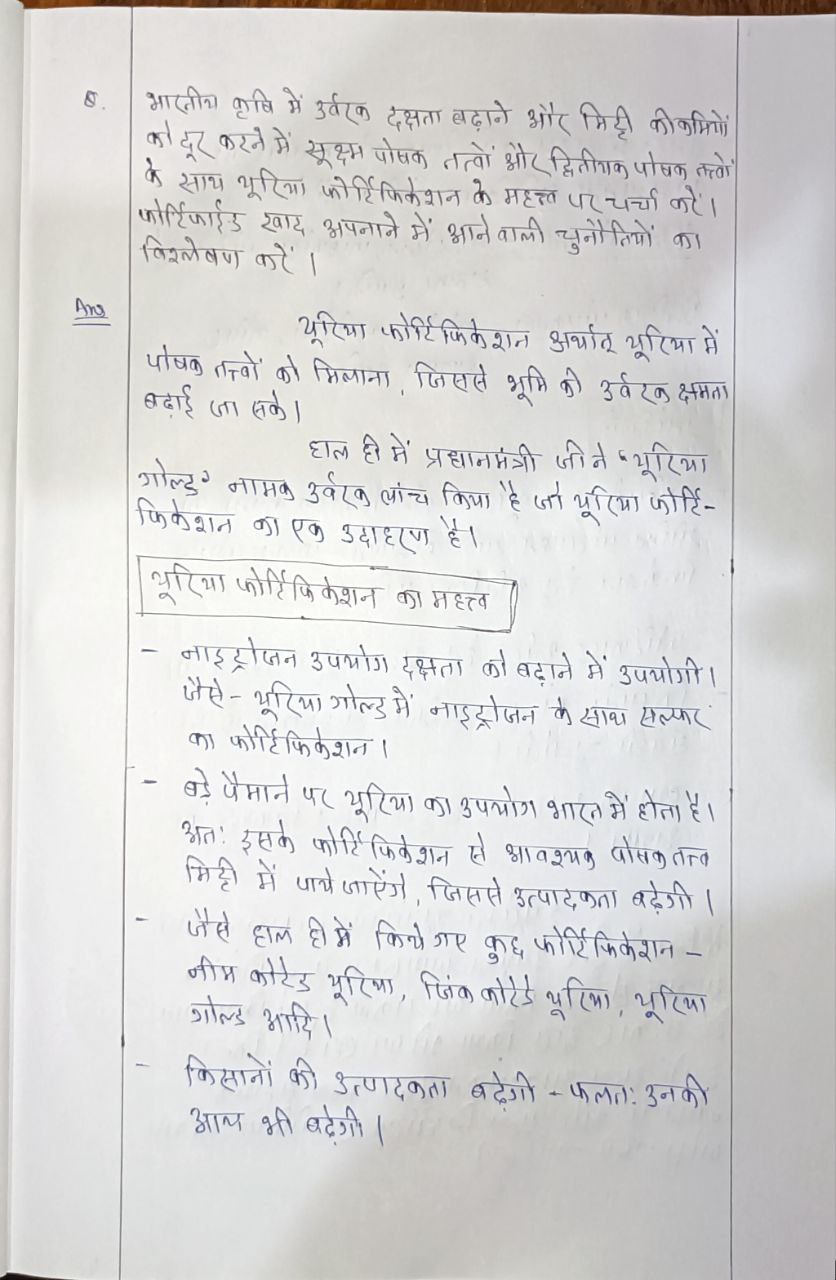 8. भारतीय कृषि में उर्वरक दक्षता बढ़ाने और मिट्टी की कमियों
को दूर करने में सूक्ष्म पोषक तत्वों और द्वितीयक पोषक तत्वों
के साथ यूरिया फोर्टिफिकेशन के महत्त्व पर चर्चा करें।
फोर्टिफाईड खाद अपनाने में आने वाली चुनौतियों का
विश्लेषण करें।
Ans
यूरिया फोर्टिफिकेशन अर्थात् यूरिया में
पोषक तत्त्वों को मिलाना, जिससे भूमि की उर्वरक क्षमता
बढ़ाई जा सके।
हाल ही में प्रधानमंत्री जी ने "यूरिया
गोल्ड" नामक उर्वरक लांच किया है जो यूरिया फोर्टि-
फिकेशन का एक उदाहरण है।
यूरिया फोर्टिफिकेशन का महत्त्व
- नाइट्रोजन उपयोग दक्षता को बढ़ाने में उपयोगी।
जैसे - यूरिया गोल्ड में नाइट्रोजन के साथ सल्फर
का फोर्टिफिकेशन।
- बड़े पैमाने पर यूरिया का उपयोग भारत में होता है।
अतः इसके फोर्टिफिकेशन से आवश्यक पोषक तत्त्व
मिट्टी में पाये जाएंगे, जिससे उत्पादकता बढ़ेगी।
- जैसे हाल ही में किये गए कुछ फोर्टिफिकेशन -
नीम कोटेड यूरिया, जिंक कोटेड यूरिया, यूरिया
गोल्ड आदि।
- किसानों की उत्पादकता बढ़ेगी - फलतः उनकी
आय भी बढ़ेगी।